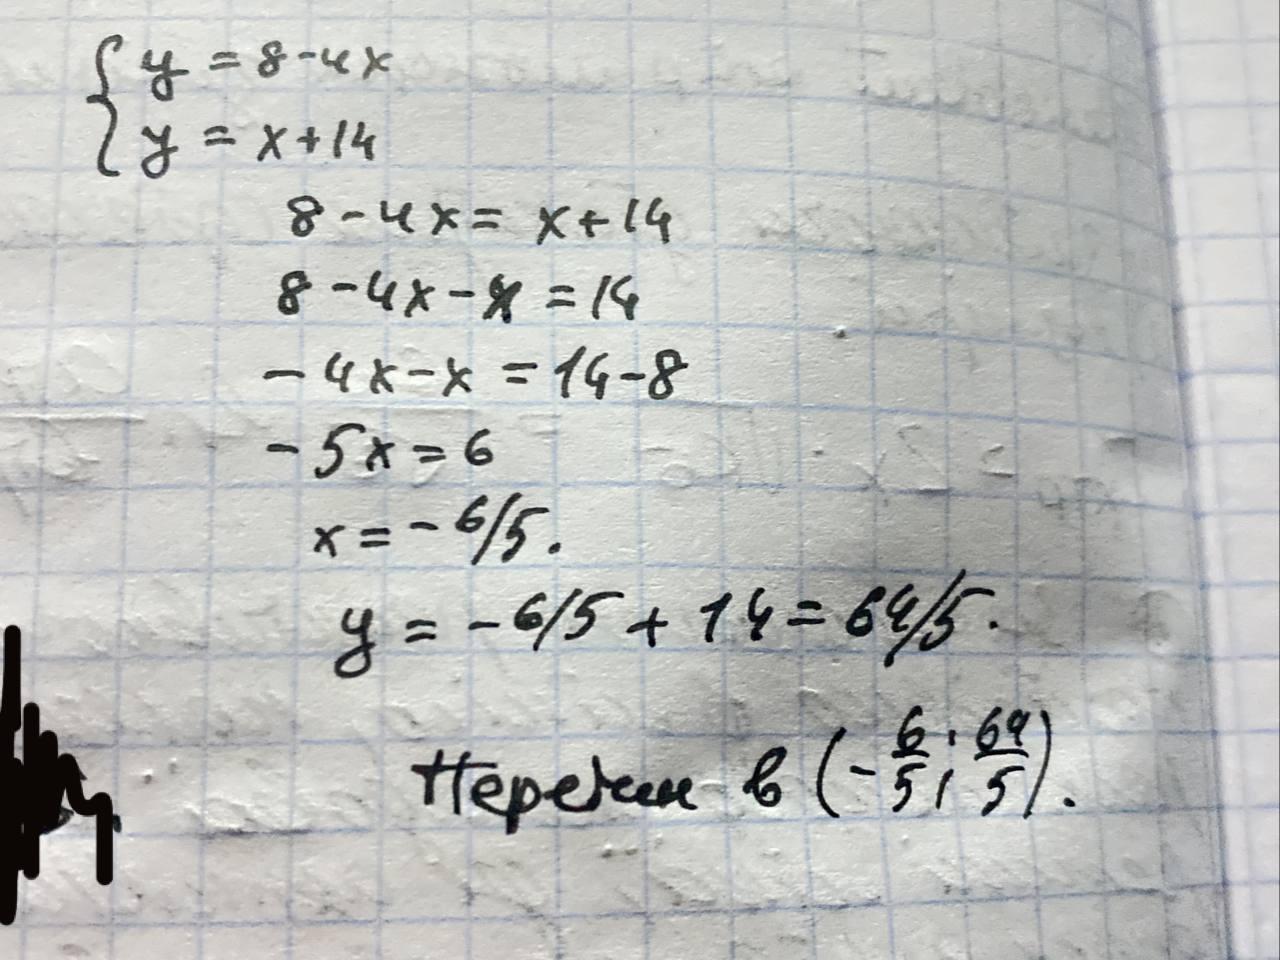 { y = 8-4x
y = x+14
8-4x = x+14
8-4x-x = 14
-4x-x = 14-8
-5x = 6
x = -6/5.
y = -6/5 + 14 = 64/5.
в (-6/5; 64/5).